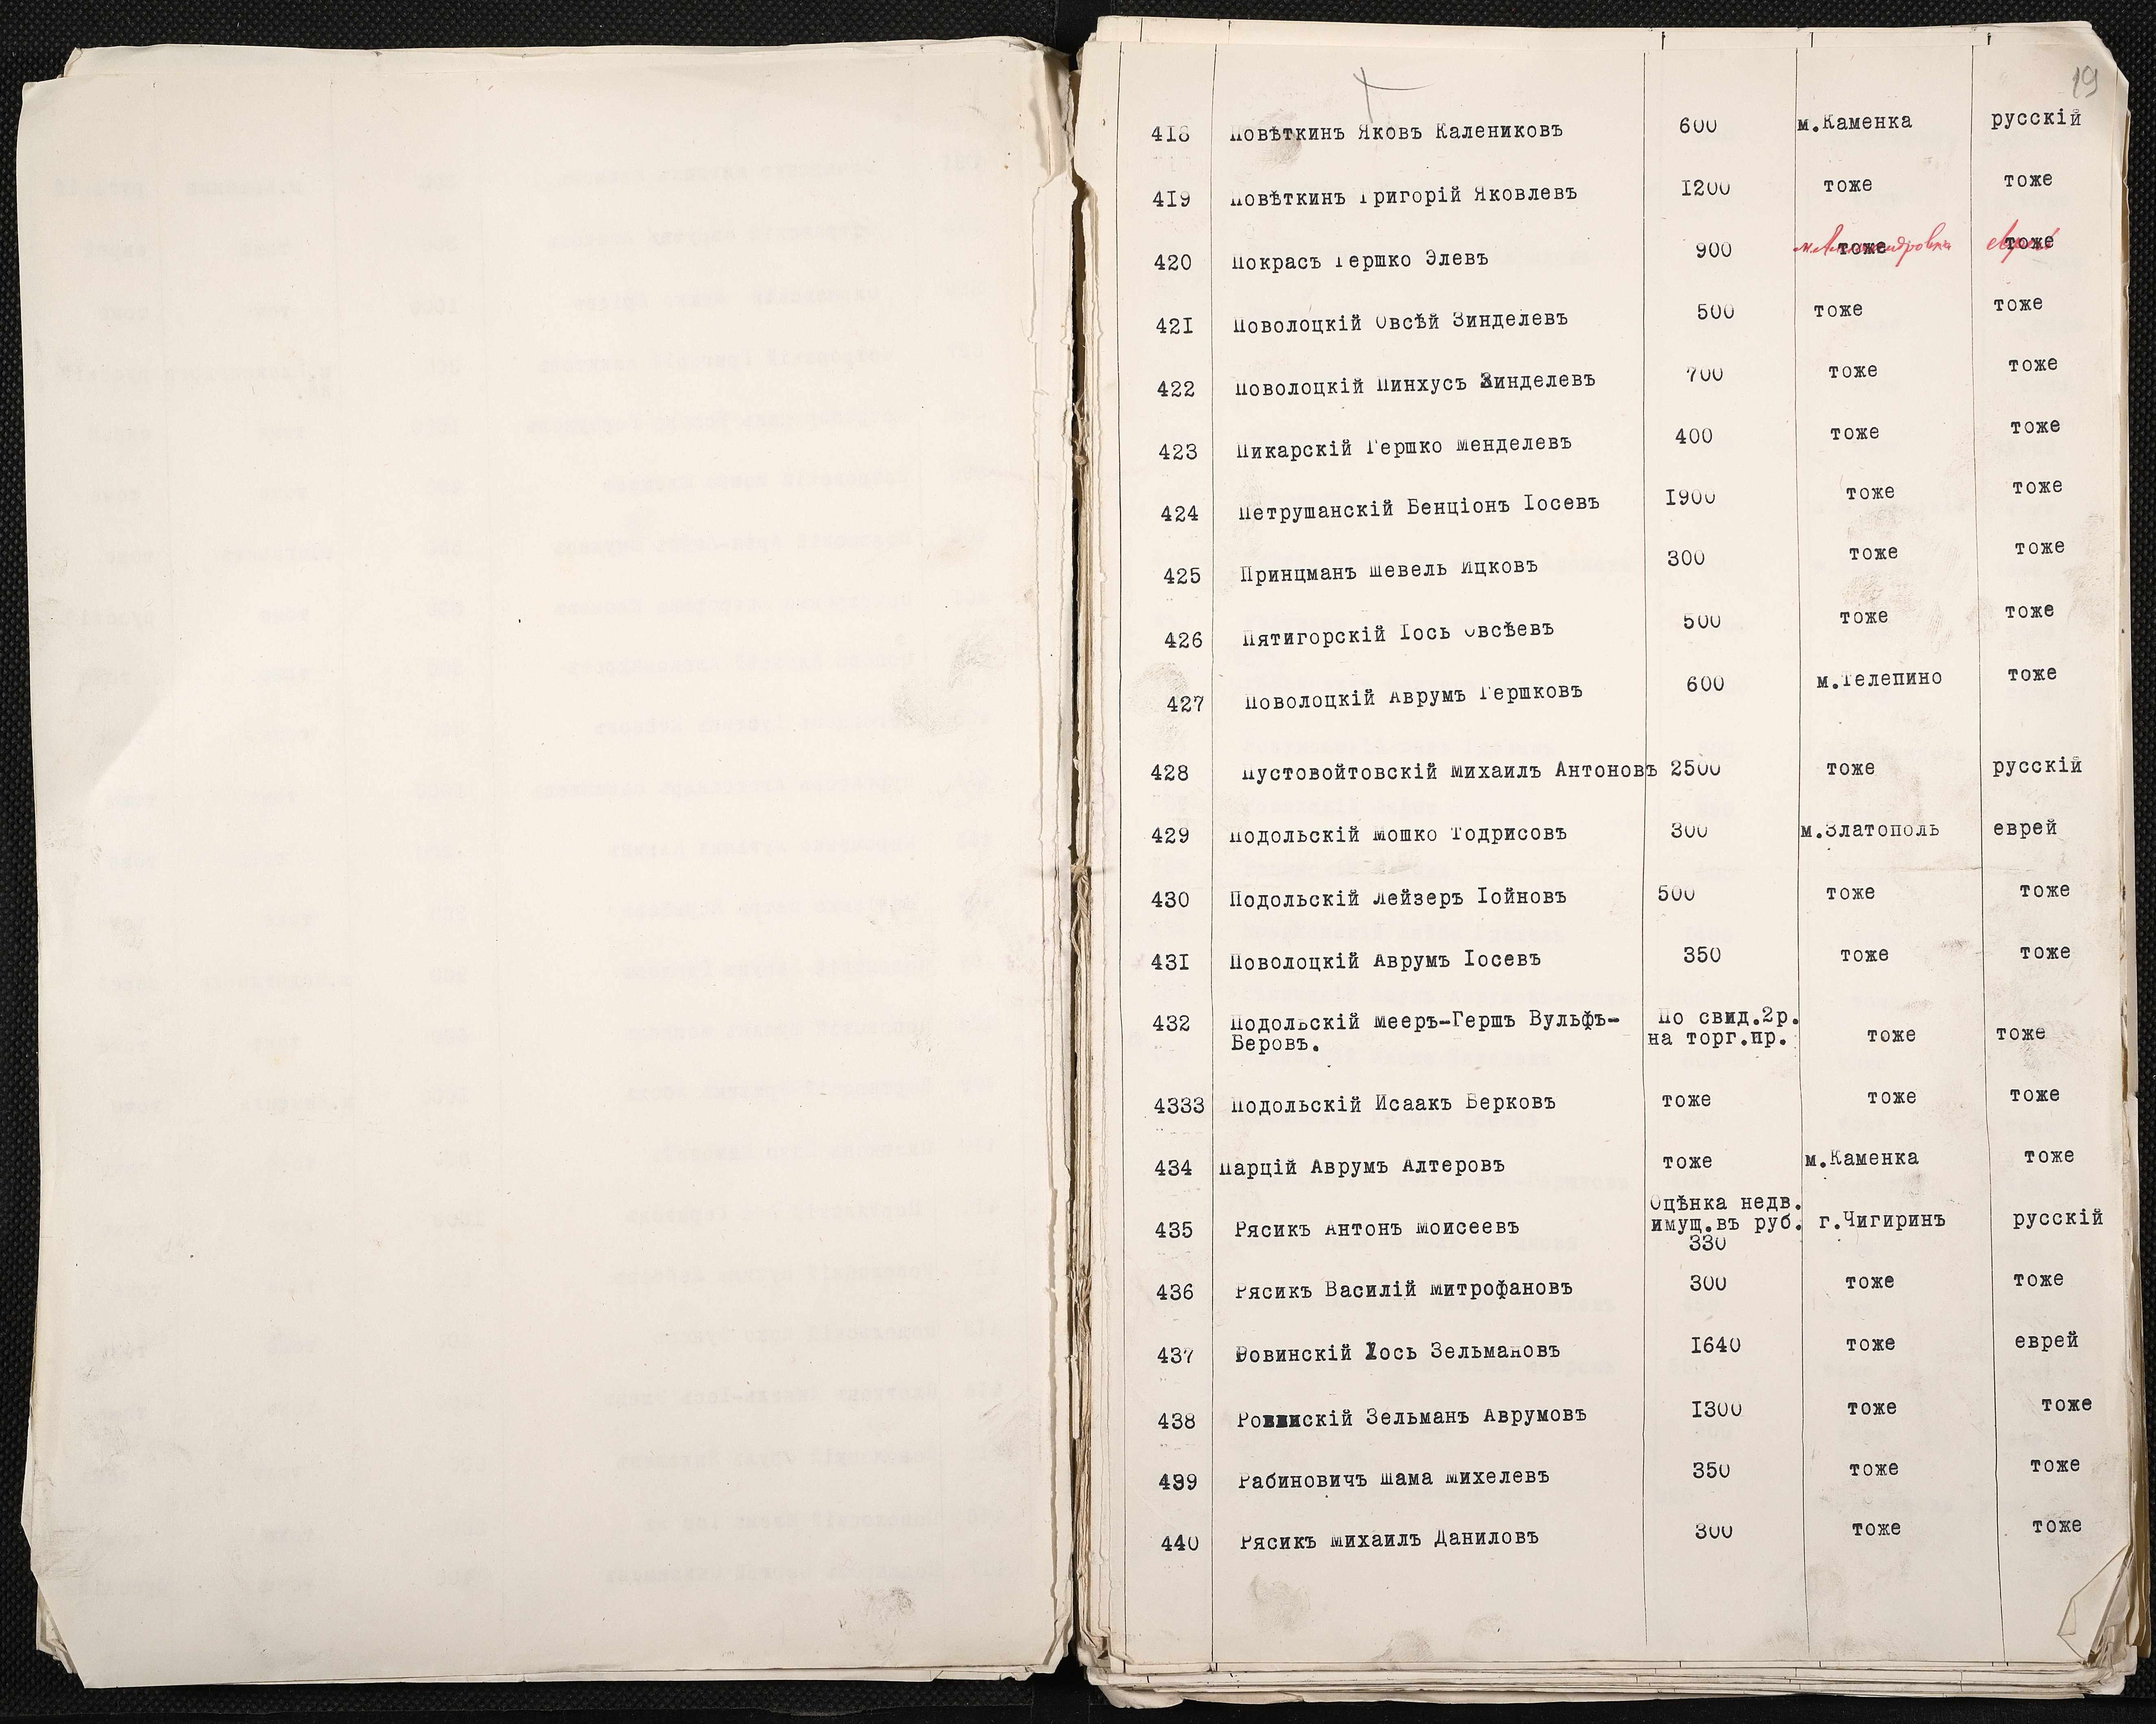 19
418 Повѣткинъ Яковъ Калениковъ 600 м.Каменка русскій
419 Повѣткинъ Григорій Яковлевъ 1200 тоже тоже
420 Покрасъ Гершко Элевъ 900 тоже м.Александровка тоже еврей
421 Поволоцкій Овсѣй Зинделевъ 500 тоже тоже
422 Поволоцкій Пинхусъ Зинделевъ 700 тоже тоже
423 Пикарскій Гершко Менделевъ 400 тоже тоже
424 Петрушанскій Бенціонъ Іосевъ 1900 тоже тоже
425 Принцманъ Шевель Ицковъ 300 тоже тоже
426 Пятигорскій Іось Овсѣевъ 500 тоже тоже
427 Поволоцкій Аврумъ Гершковъ 600 м.Телепино тоже
428 Пустовойтовскій Михаилъ Антоновъ 2500 тоже русскій
429 Подольскій Мошко Тодрисовъ 300 м.Златополь еврей
430 Подольскій Лейзеръ Іойновъ 500 тоже тоже
431 Поволоцкій Аврумъ Іосевъ 350 тоже тоже
432 Подольскій Мееръ-Гершъ Вульфъ- По свид.2р.
Беровъ. на торг.пр. тоже тоже
4333 Подольскій Исаакъ Берковъ тоже тоже тоже
434 Парцій Аврумъ Алтеровъ тоже м.Каменка тоже
Оцѣнка недв.
435 Рясикъ Антонъ Моисеевъ имущ.въ руб. г.Чигиринъ русскій
330
436 Рясикъ Василій Митрофановъ 300 тоже тоже
437 Ровинскій Іось Зельмановъ 1640 тоже еврей
438 Ровинскій Зельманъ Аврумовъ 1300 тоже тоже
439 Рабиновичъ Шама Михелевъ 350 тоже тоже
440 Рясикъ Михаилъ Даниловъ 300 тоже тоже